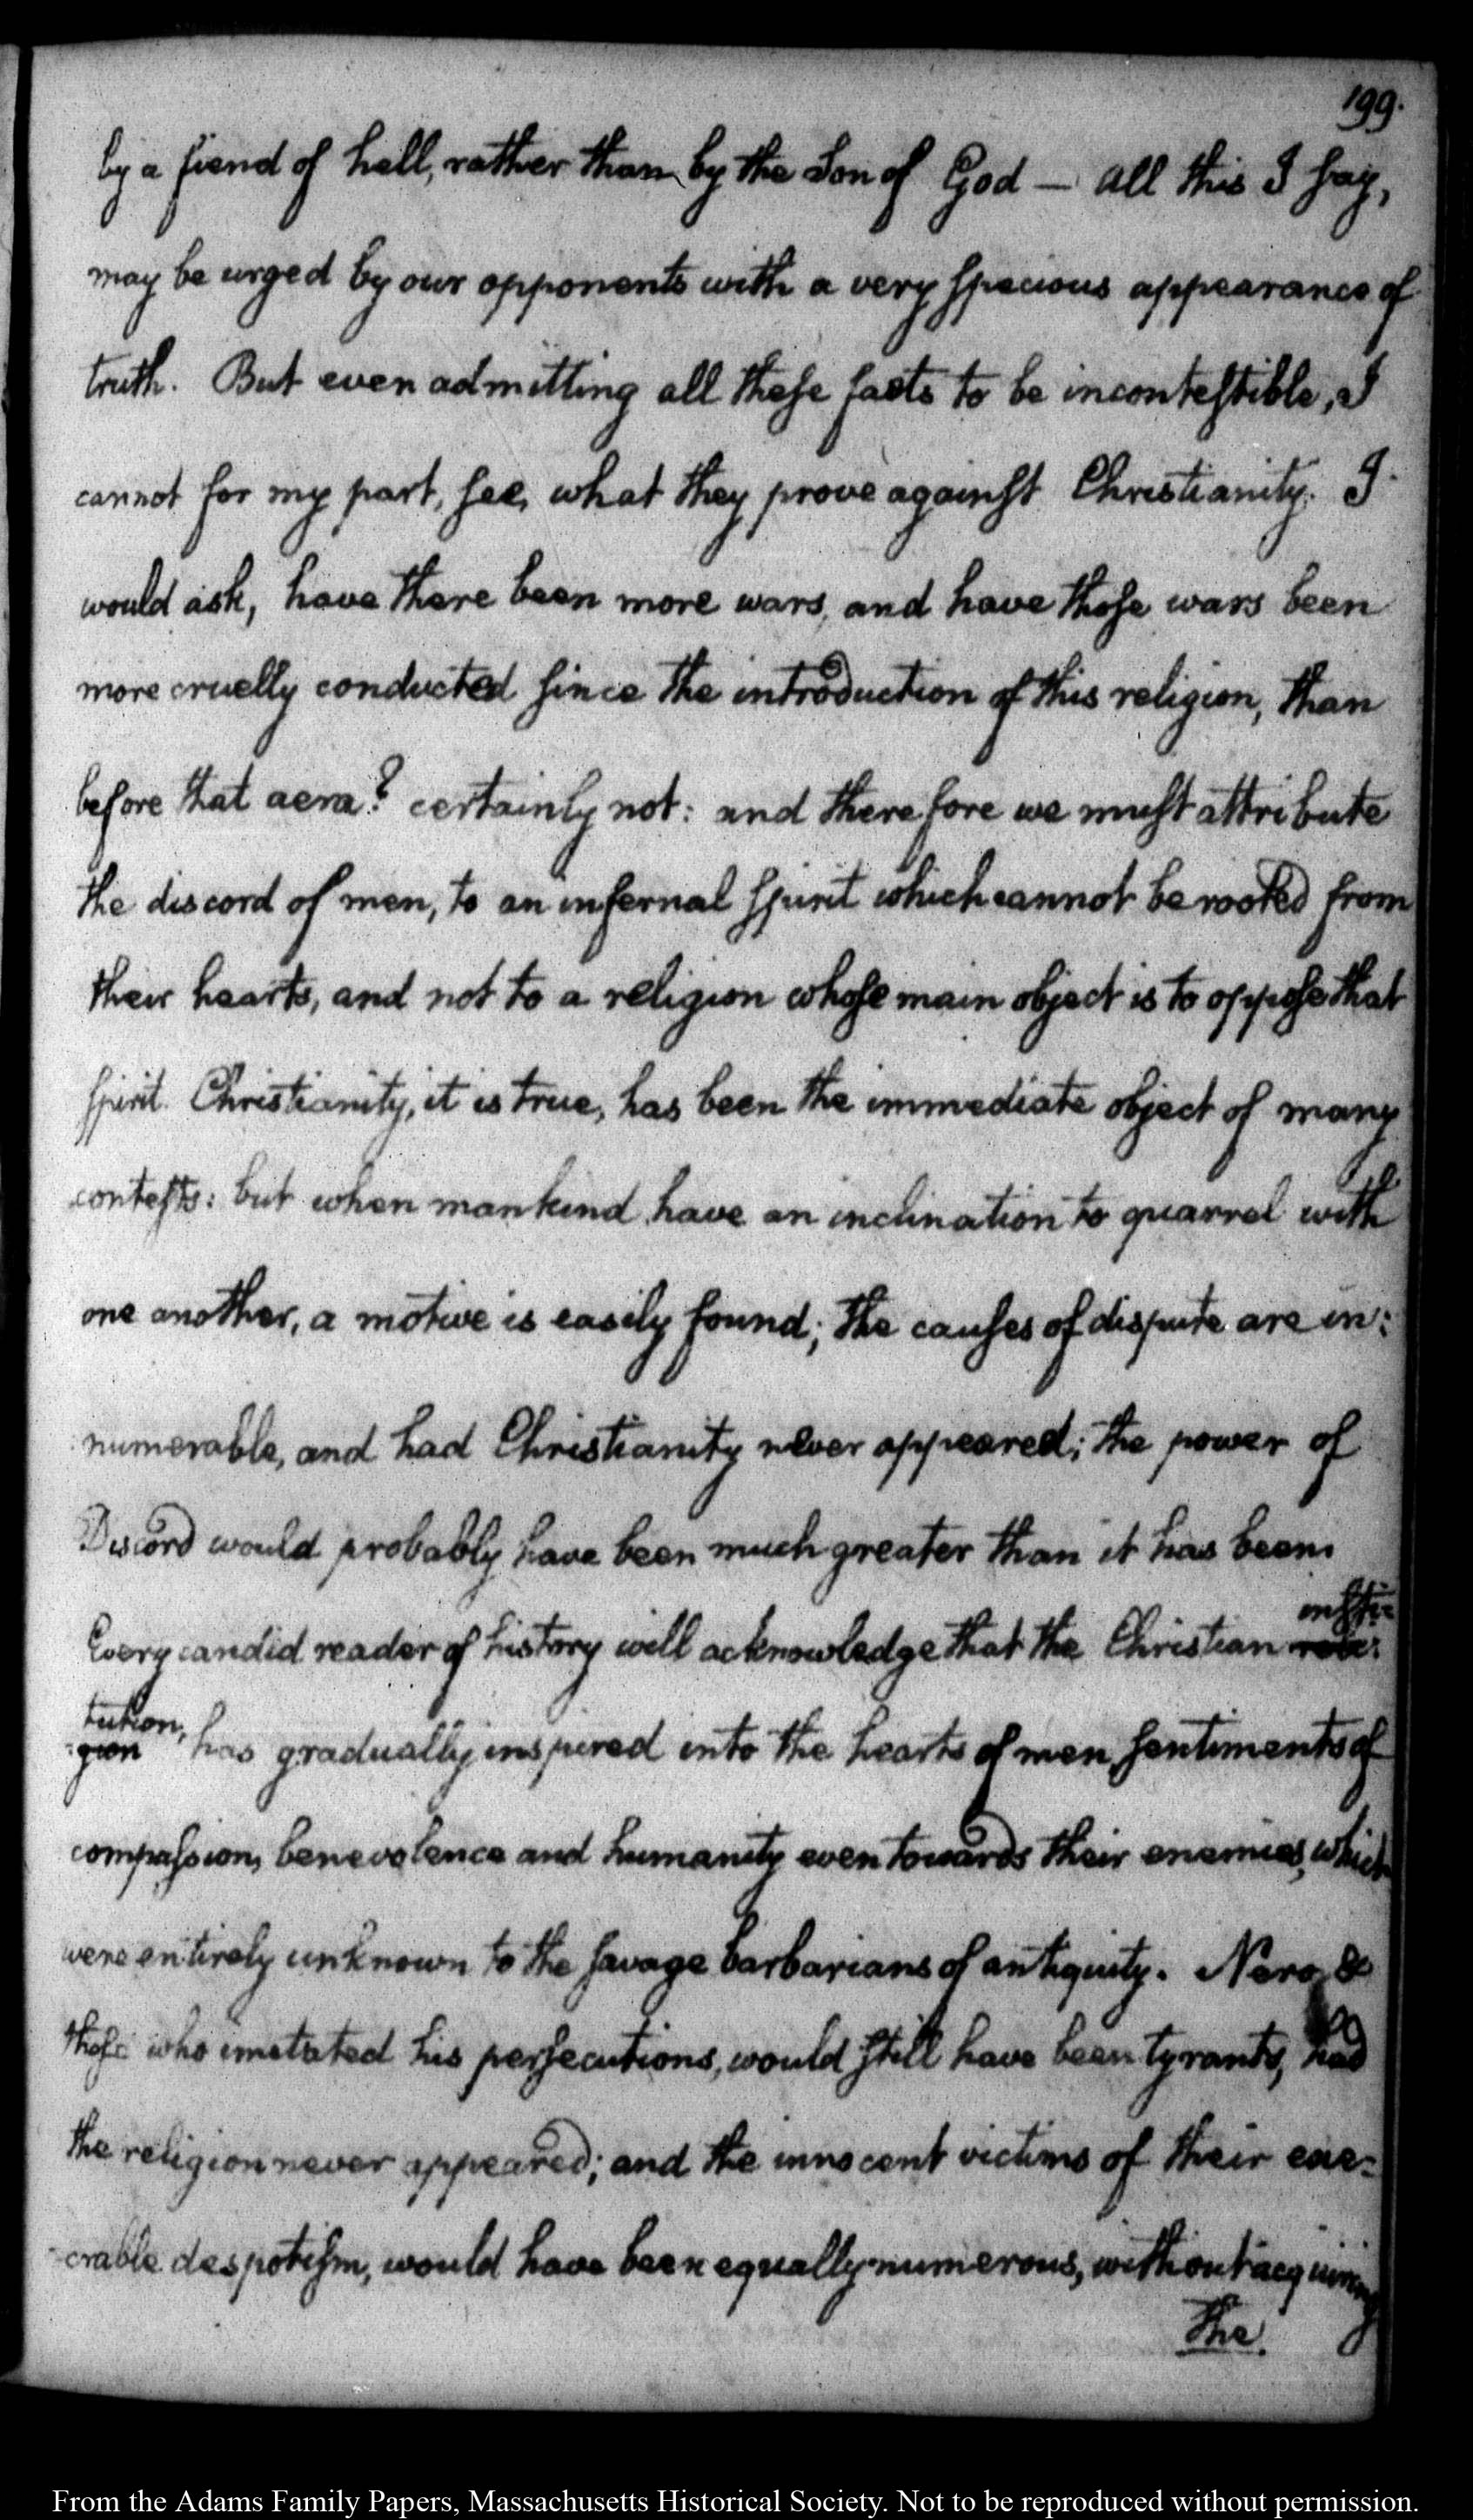 199.
by a fiend of hell, rather than by the Son of God — all this I say,
may be urged by our opponents with a very specious appearance of
truth. But even admitting all these facts to be incontestible, I
cannot for my part, see, what they prove against Christianity. I
would ask, have there been more wars, and have those wars been
more cruelly conducted since the introduction of this religion, than
before that aera? certainly not: and therefore we must attribute
the discord of men, to an infernal spirit which cannot be rooted from
their hearts, and not to a religion whose main object is to oppose that
spirit. Christianity, it is true, has been the immediate object of many
contests: but when mankind have an inclination to quarrel with
one another, a motive is easily found; the causes of dispute are in:
numerable, and had Christianity never appeared; the power of
Discord would probably have been much greater than it has been.
insti=
Every candid reader of history will acknowledge that the Christian
tution,
gion has gradually inspired into the hearts of men, sentiments of
compassion, benevolence and humanity even towards their enemies, which
were entirely unknown to the savage barbarians of antiquity. Nero, &
those who imitated his persecutions, would still have been tyrants, had
the religion never appeared; and the innocent victims of their exe=
crable despotism, would have been equally numerous, without acquiring
the
From the Adams Family Papers, Massachusetts Historical Society. Not to be reproduced without permission.